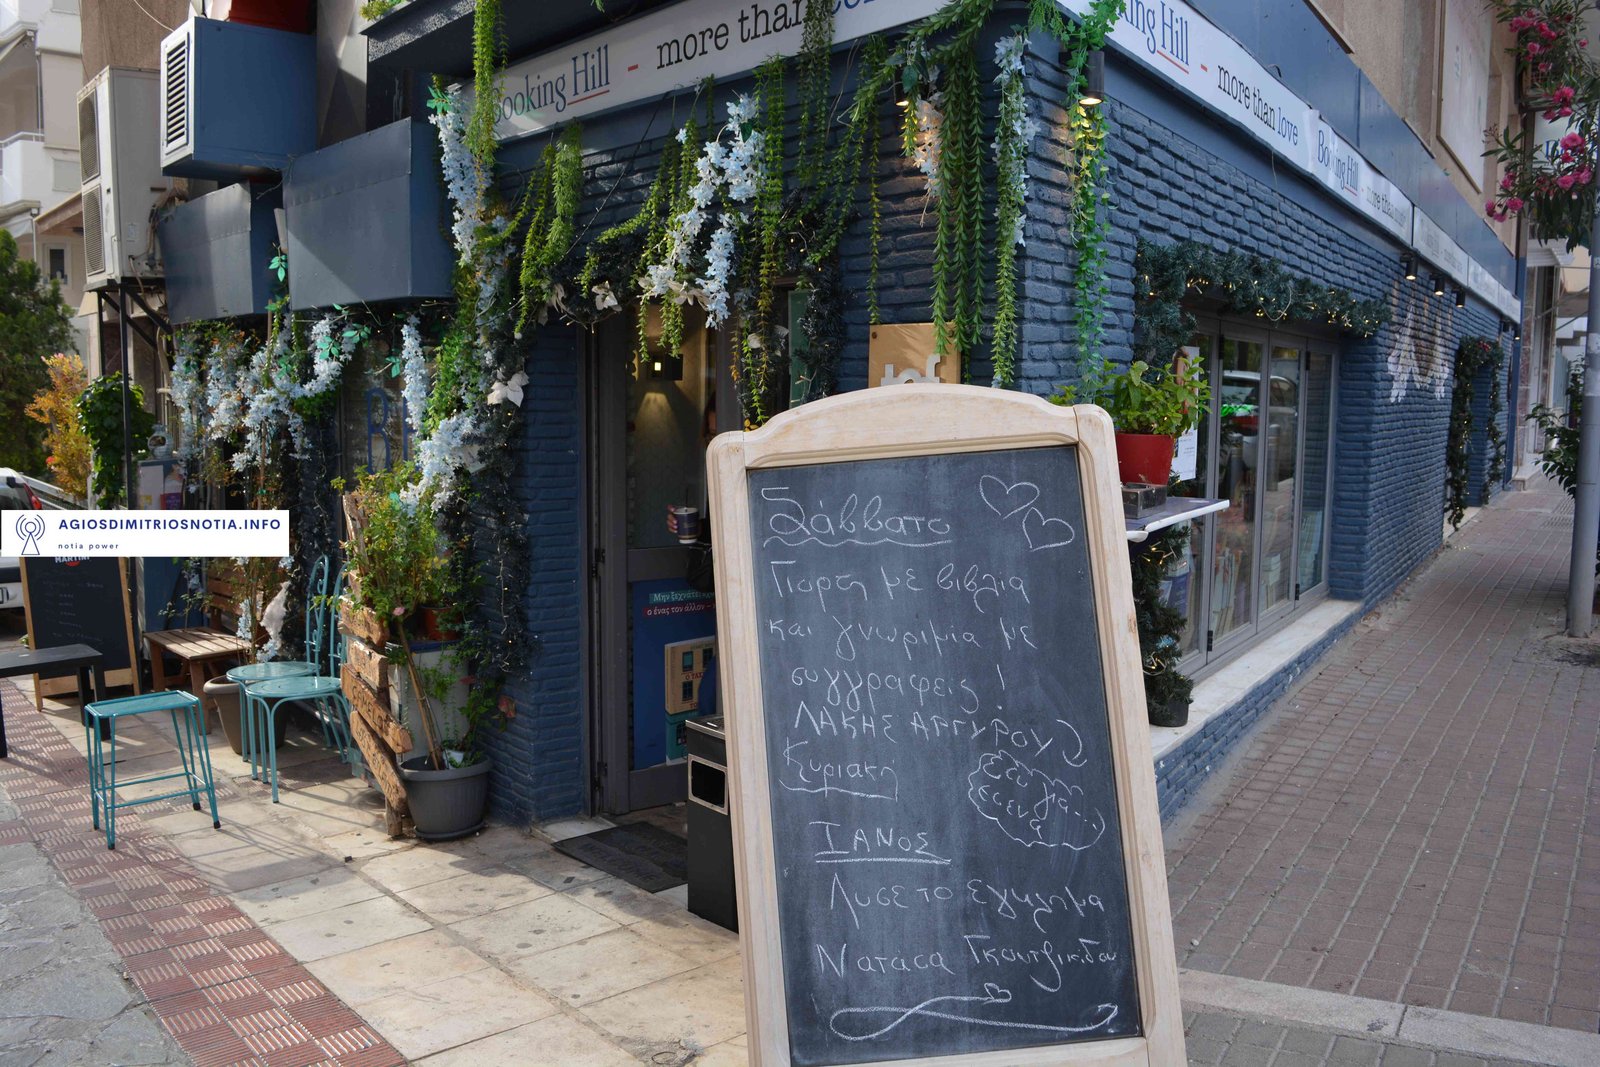 Booking Hill - more than
king Hill - more than love Booking Hill - more than music
AGIOSDIMITRIOSNOTIA.INFO
notia power
MARTINI
Μην ξεχνάτε
ο ένας τον άλλον -
Σάββατο
Γιορτή με βιβλία
και γνωριμία με
συγγραφείς !
ΛΑΚΗΣ ΑΡΓΥΡΟΥ
Κυριακή
ΙΑΝΟΣ
Λυσε το εγκλημα
Νατασα Γκουτζικιδου